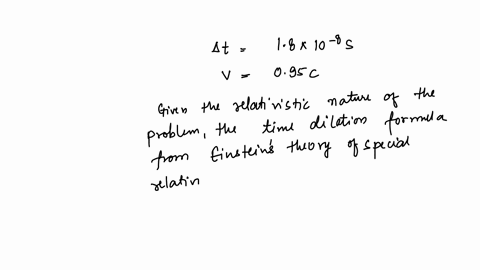 Δt = 1.8 × 10⁻⁸ S
V = 0.95 C
Given the relativistic nature of the
problem, the time dilation formula
from Einstein's theory of special
relativ